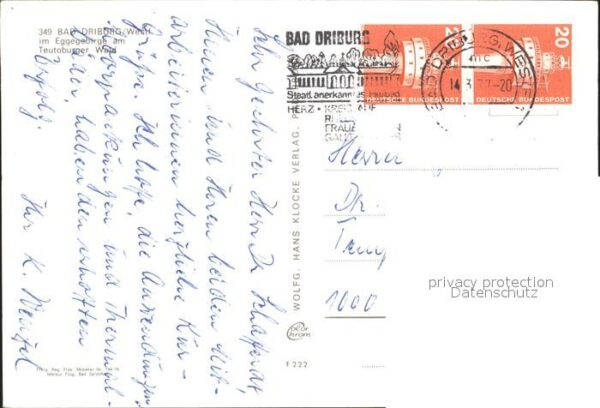 349 BAD DRIBURG/Westf.
im Eggegebirge am
Teutoburger Wald
Sehr geehrter Herr Dr.
Ihnen und Ihren beiden Mit-
arbeiterinnen herzliche Kur-
grüße. Ich hoffe, die Anwendungen,
und Thermal-
bäder, haben den erhofften
Erfolg.
Ihr K. Wenzel
WOLFG. HANS KLOCKE VERLAG, P
color
chrom
F 222
BAD DRIBURG
Staatl. anerkanntes Heilbad
HERZ • KREISLAUF
FRAUEN
BAD DRIBURG, WESTF
14.3.77-20
DEUTSCHE BUNDESPOST
20
DEUTSCHE BUNDESPOST
Herrn
Dr.
1000
privacy protection
Datenschutz